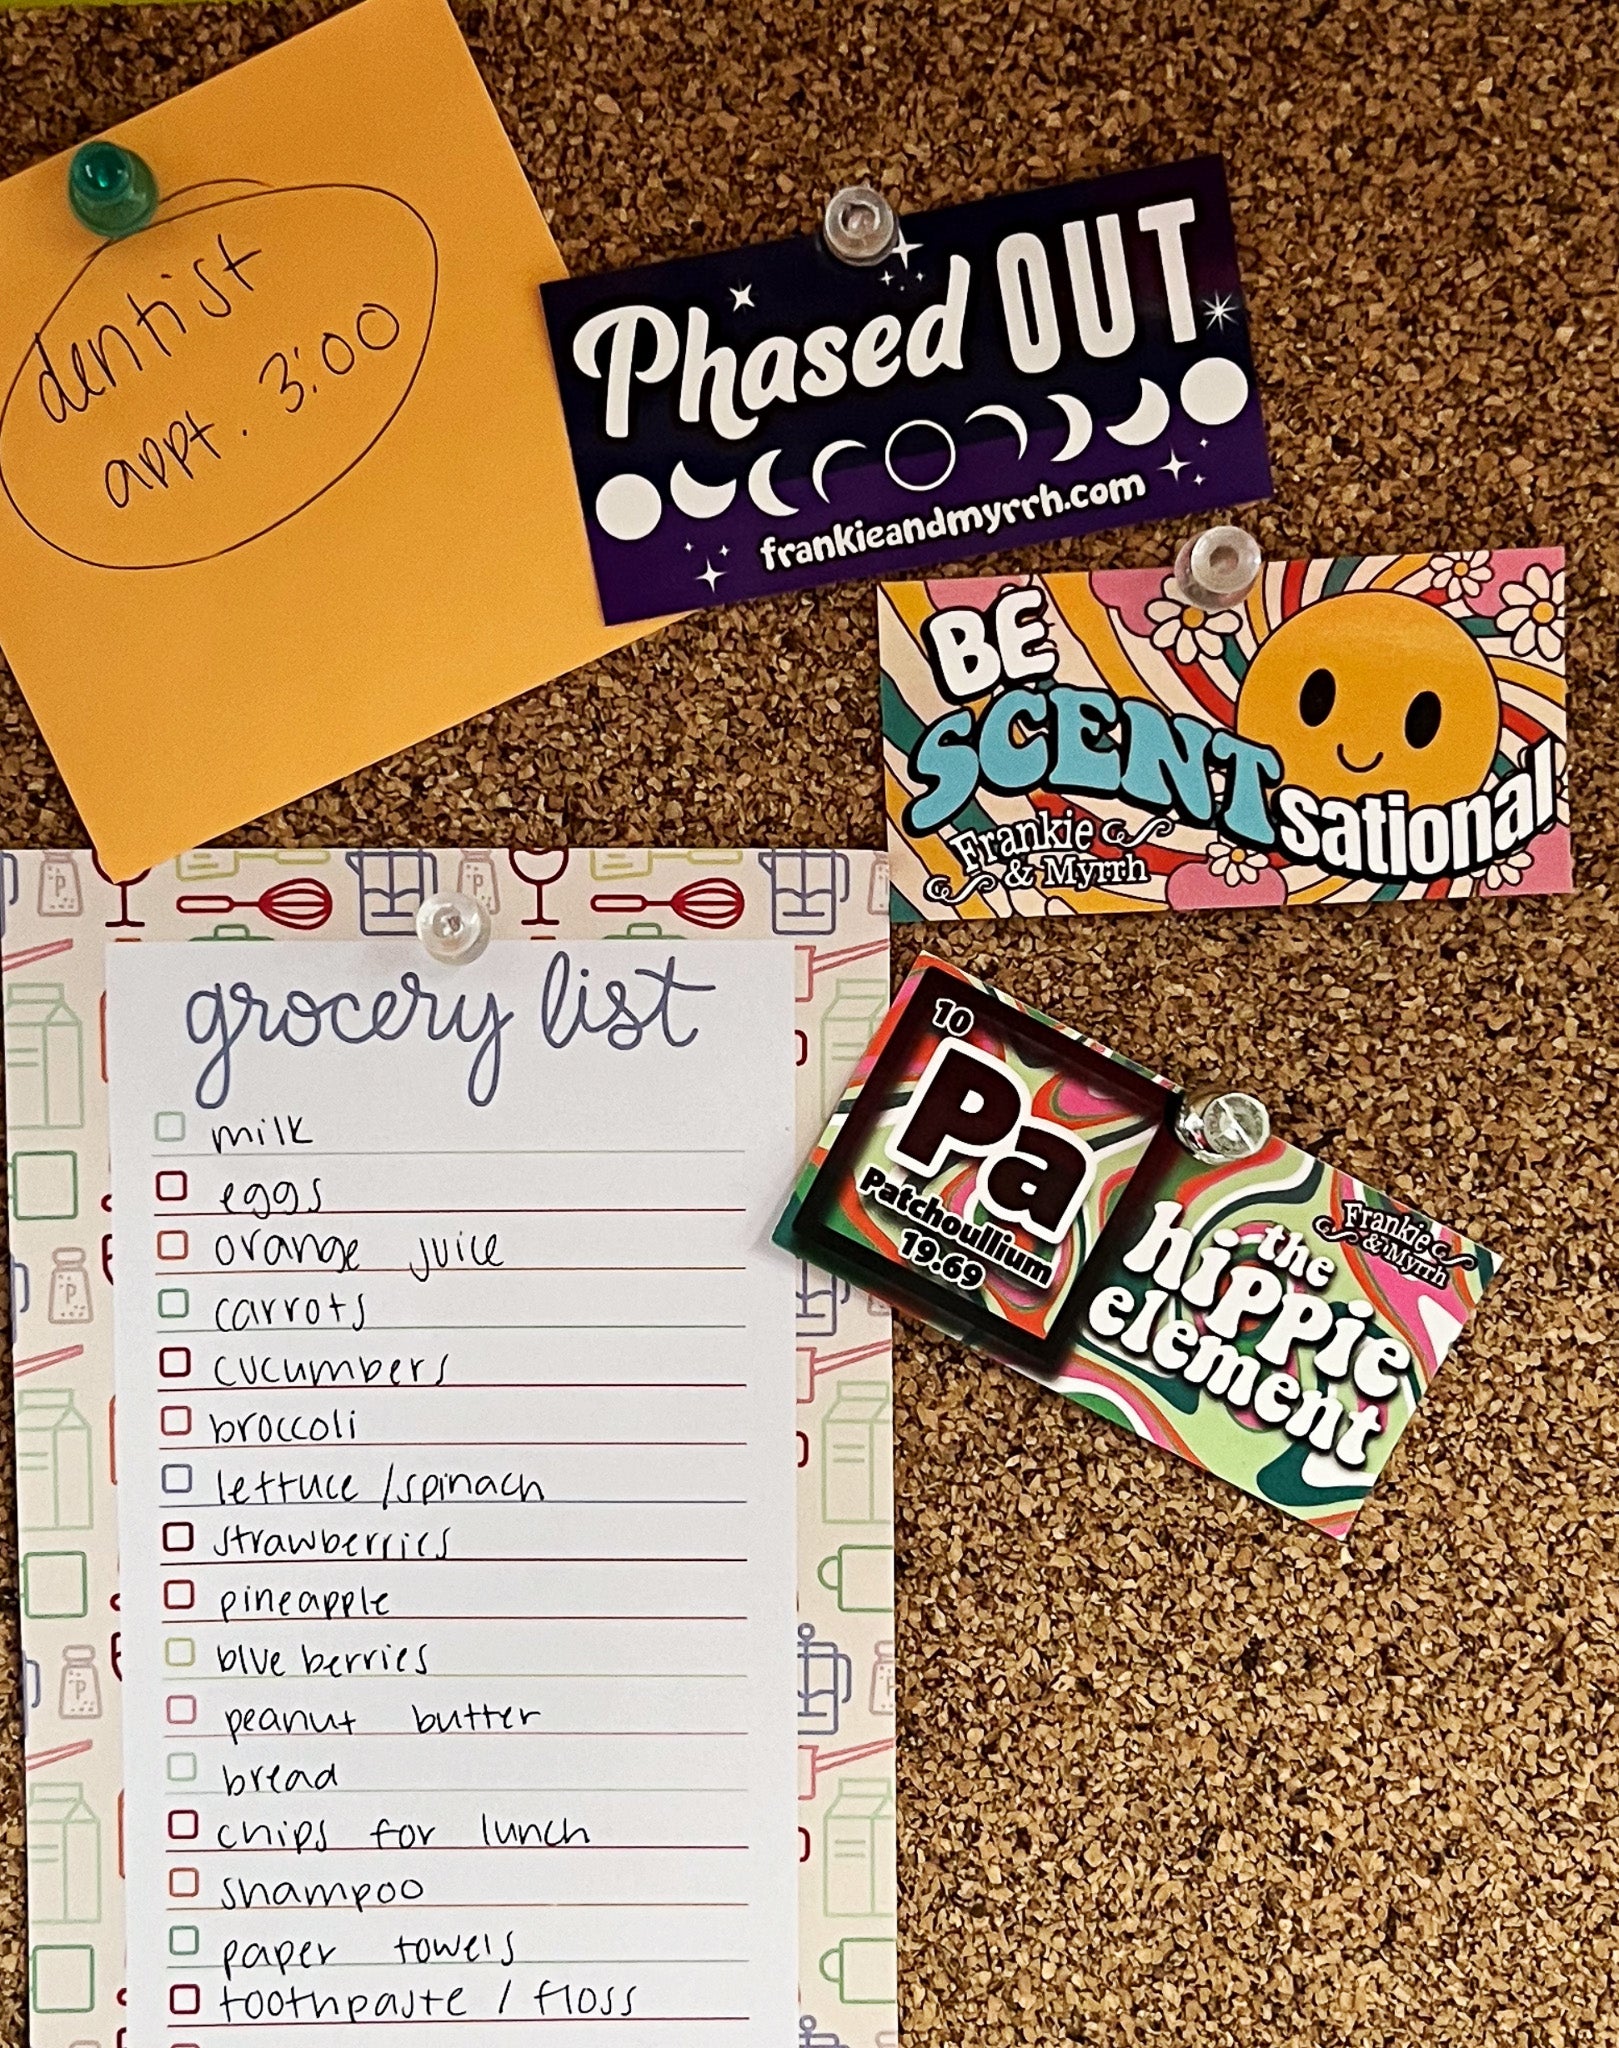 dentist
appt. 3:00
Phased OUT
frankieandmyrrh.com
BE
SCENTsational
Frankie
& Myrrh
10
Pa
Patchoullium
19.69
Frankie
& Myrrh
the
hippie
element
grocery list
milk
eggs
orange juice
carrots
cucumbers
broccoli
lettuce / spinach
strawberries
pineapple
blueberries
peanut butter
bread
chips for lunch
shampoo
paper towels
toothpaste / floss
P
P
P
P
P